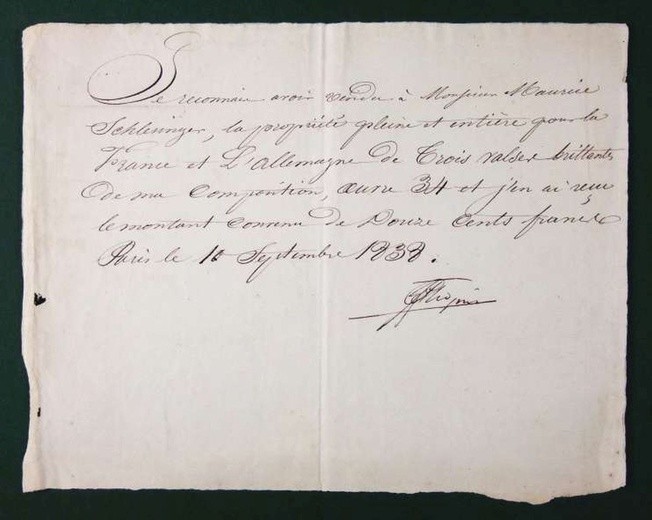 Je reconnais avoir vendu à Monsieur Maurice
Schlesinger, la propriété pleine et entière pour la
France et L'allemagne de Trois valses brillantes
de ma composition, œuvre 34 et j'en ai reçu
le montant convenu de Douze cents francs
Paris le 10 Septembre 1838.
FChopin